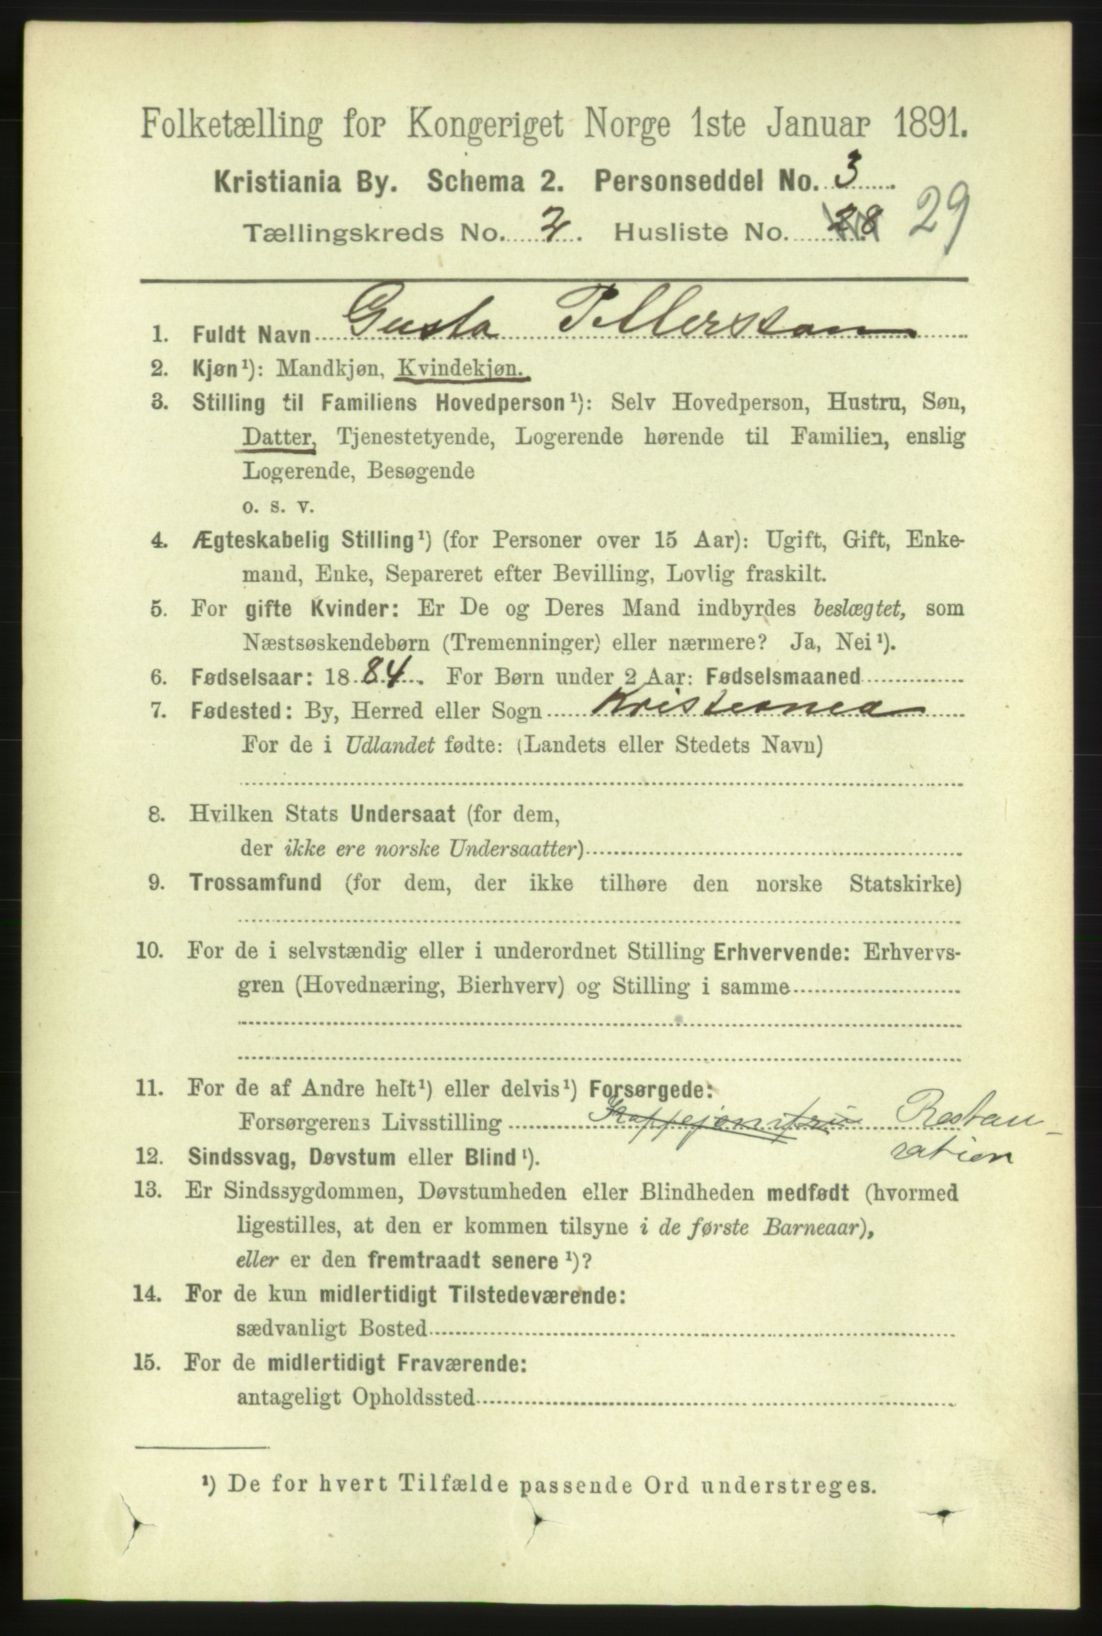 Folketælling for Kongeriget Norge 1ste Januar 1891.
Kristiania By. Schema 2. Personseddel No. 3.
Tællingskreds No. 2. Husliste No. 28 29
1. Fuldt Navn Gusta Pettersson
2. Kjøn¹): Mandkjøn, Kvindekjøn.
3. Stilling til Familiens Hovedperson¹): Selv Hovedperson, Hustru, Søn,
Datter, Tjenestetyende, Logerende hørende til Familien, enslig
Logerende, Besøgende
o. s. v.
4. Ægteskabelig Stilling¹) (for Personer over 15 Aar): Ugift, Gift, Enke-
mand, Enke, Separeret efter Bevilling, Lovlig fraskilt.
5. For gifte Kvinder: Er De og Deres Mand indbyrdes beslægtet, som
Næstsøskendebørn (Tremenninger) eller nærmere? Ja, Nei¹).
6. Fødselsaar: 1884. For Børn under 2 Aar: Fødselsmaaned
7. Fødested: By, Herred eller Sogn Kristiania
For de i Udlandet fødte: (Landets eller Stedets Navn)
8. Hvilken Stats Undersaat (for dem,
der ikke ere norske Undersaatter)
9. Trossamfund (for dem, der ikke tilhøre den norske Statskirke)
10. For de i selvstændig eller i underordnet Stilling Erhvervende: Erhvervs-
gren (Hovednæring, Bierhverv) og Stilling i samme
11. For de af Andre helt¹) eller delvis¹) Forsørgede:
Forsørgerens Livsstilling Restau-
ration
12. Sindssvag, Døvstum eller Blind¹).
13. Er Sindssygdommen, Døvstumheden eller Blindheden medfødt (hvormed
ligestilles, at den er kommen tilsyne i de første Barneaar),
eller er den fremtraadt senere¹)?
14. For de kun midlertidigt Tilstedeværende:
sædvanligt Bosted
15. For de midlertidigt Fraværende:
antageligt Opholdssted
¹) De for hvert Tilfælde passende Ord understreges.